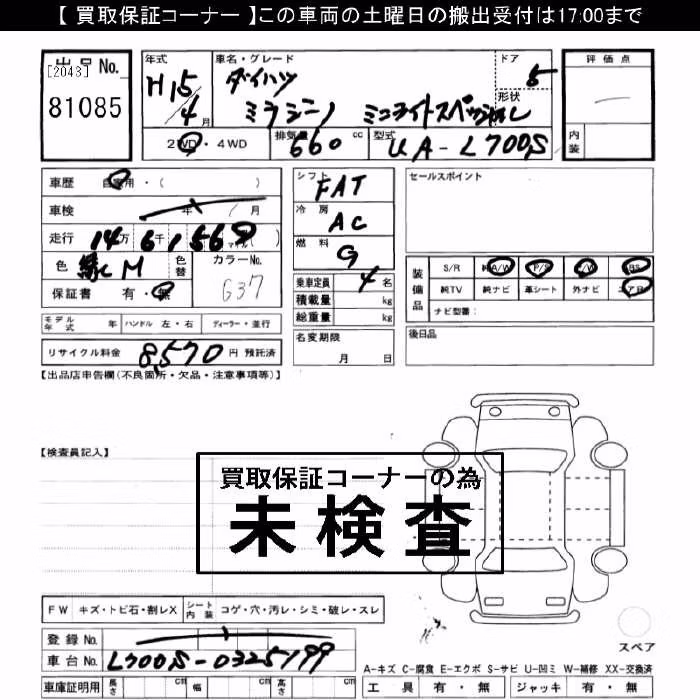 【 買取保証コーナー 】この車両の土曜日の搬出受付は17:00まで
出品No.
[2043]
81085
年式
H15/4月
車名・グレード
ダイハツ
ミラジーノ ミニライトスペシャル
ドア
5
形状
評価点
内装
2WD・4WD
排気量 660 cc
型式 UA-L700S
車歴 自家用・( )
車検 年 / 月
走行 14万6千156 マイル( )
色 緑 M
色替
カラーNo.
G37
保証書 有・無
シフト
FAT
冷房
AC
燃料
G
乗車定員 4名
積載量 kg
総重量 kg
セールスポイント
装備品
S/R 純A/W P/S P/W ABS
純TV 純ナビ 革シート 外ナビ エアB
ナビ型番:
モデル年式 年 ハンドル 左・右 ディーラー・並行
リサイクル料金 8,570 円 預託済
名変期限
月 日
後日品
【出品店申告欄(不良箇所・欠品・注意事項等)】
【検査員記入】
買取保証コーナーの為
未検査
FW キズ・トビ石・割レX シート内装 コゲ・穴・汚レ・シミ・破レ・スレ
登録No.
車台No. L700S-0325199
スペア
車庫証明用 長さ cm 幅 cm 高さ cm
A-キズ C-腐食 E-エクボ S-サビ U-凹ミ W-補修 XX-交換済
工具 有・無 ジャッキ 有・無